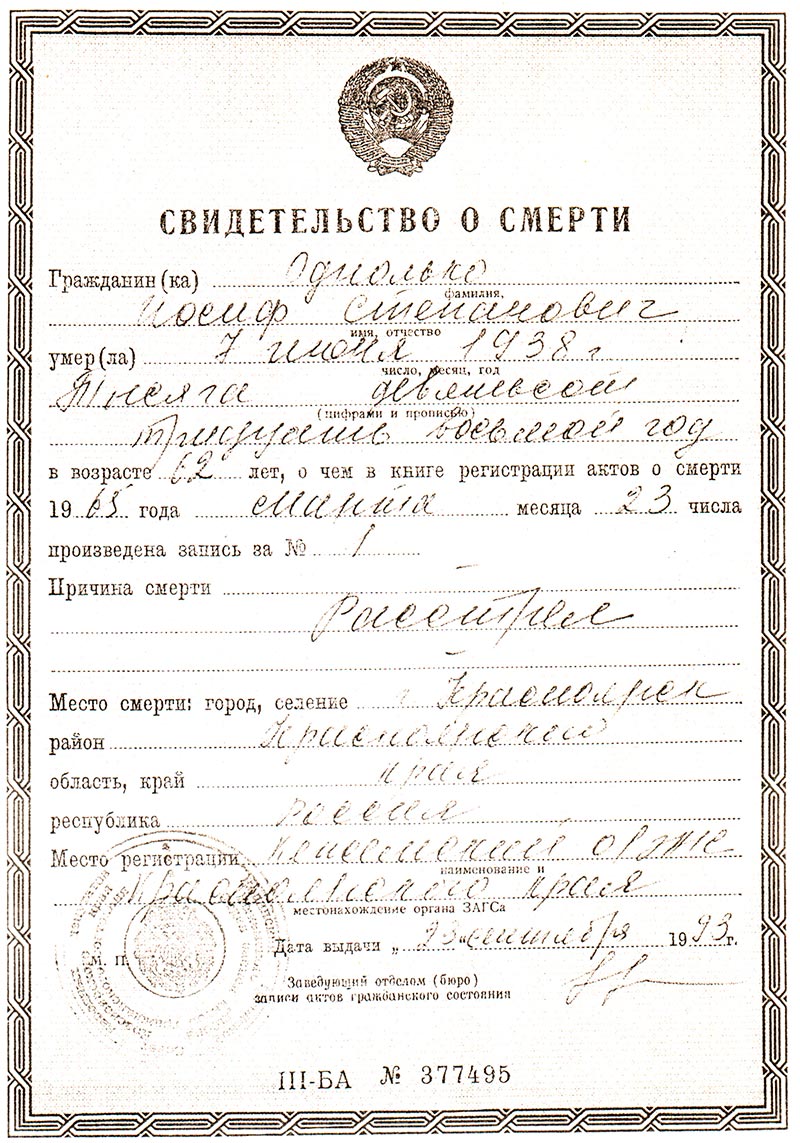 СВИДЕТЕЛЬСТВО О СМЕРТИ
Гражданин(ка) Однолько
фамилия,
Иосиф Степанович
имя, отчество
умер(ла) 7 июня 1938 г
число, месяц, год
Тысяча девятьсот
(цифрами и прописью)
тридцать восьмой год
в возрасте 62 лет, о чем в книге регистрации актов о смерти
1965 года марта месяца 23 числа
произведена запись за № 1
Причина смерти
Расстрел
Место смерти: город, селение г Красноярск
район Красноярский
область, край края
республика Россия
Место регистрации
наименование и
Красноярского края
местонахождение органа ЗАГСа
Дата выдачи „ 23 сентября 1993 г.
М. П.
Заведующий отделом (бюро)
записи актов гражданского состояния
III-БА № 377495